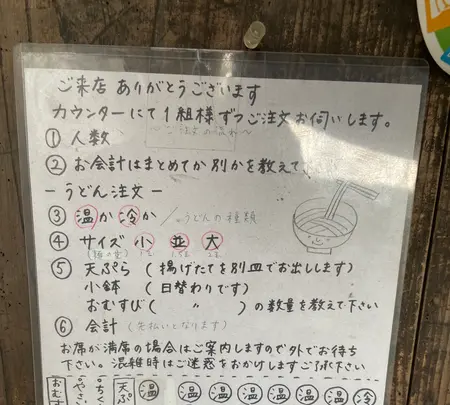 ご来店 ありがとうございます
カウンターにて1組様ずつご注文お伺いします。
① 人数
② お会計はまとめてか別かを教えて
- うどん注文 -
③ 温か冷か / うどんの種類
④ サイズ 小 並 大
⑤ 天ぷら ( 揚げたてを別皿でお出しします )
小鉢 ( 日替わりです )
おむすび ( 〃 ) の数量を教えて下さい
⑥ 会計 (先払いとなります)
お席が満席の場合はご案内しますので外でお待ち
下さい。混雑時はご迷惑をおかけしますご了承下さい
おむす
ちく
天ぷ
温 温 温 温 温 温 温 冷